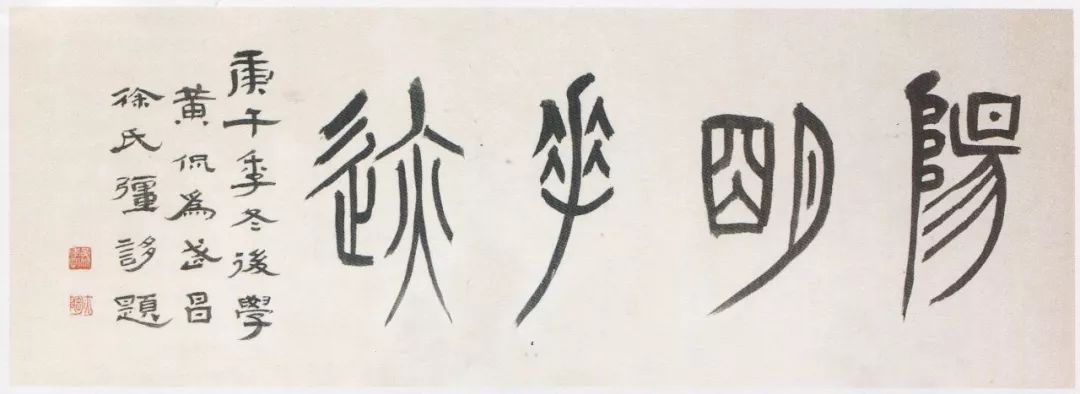 陽明迹
庚午季冬後學
黄侃爲武昌
徐氏彊誃題